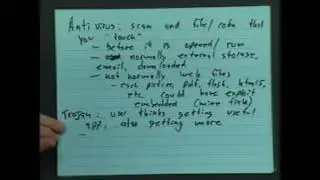 Anti virus: scan and file/code that
you "touch"
- before it is opened/run
- normally external storage,
email, downloaded
- not normally web files
- each picture, pdf, flash, html5,
etc. could have exploit
embedded (mine field)
Trojan: user thinks getting useful
app; also getting more
-